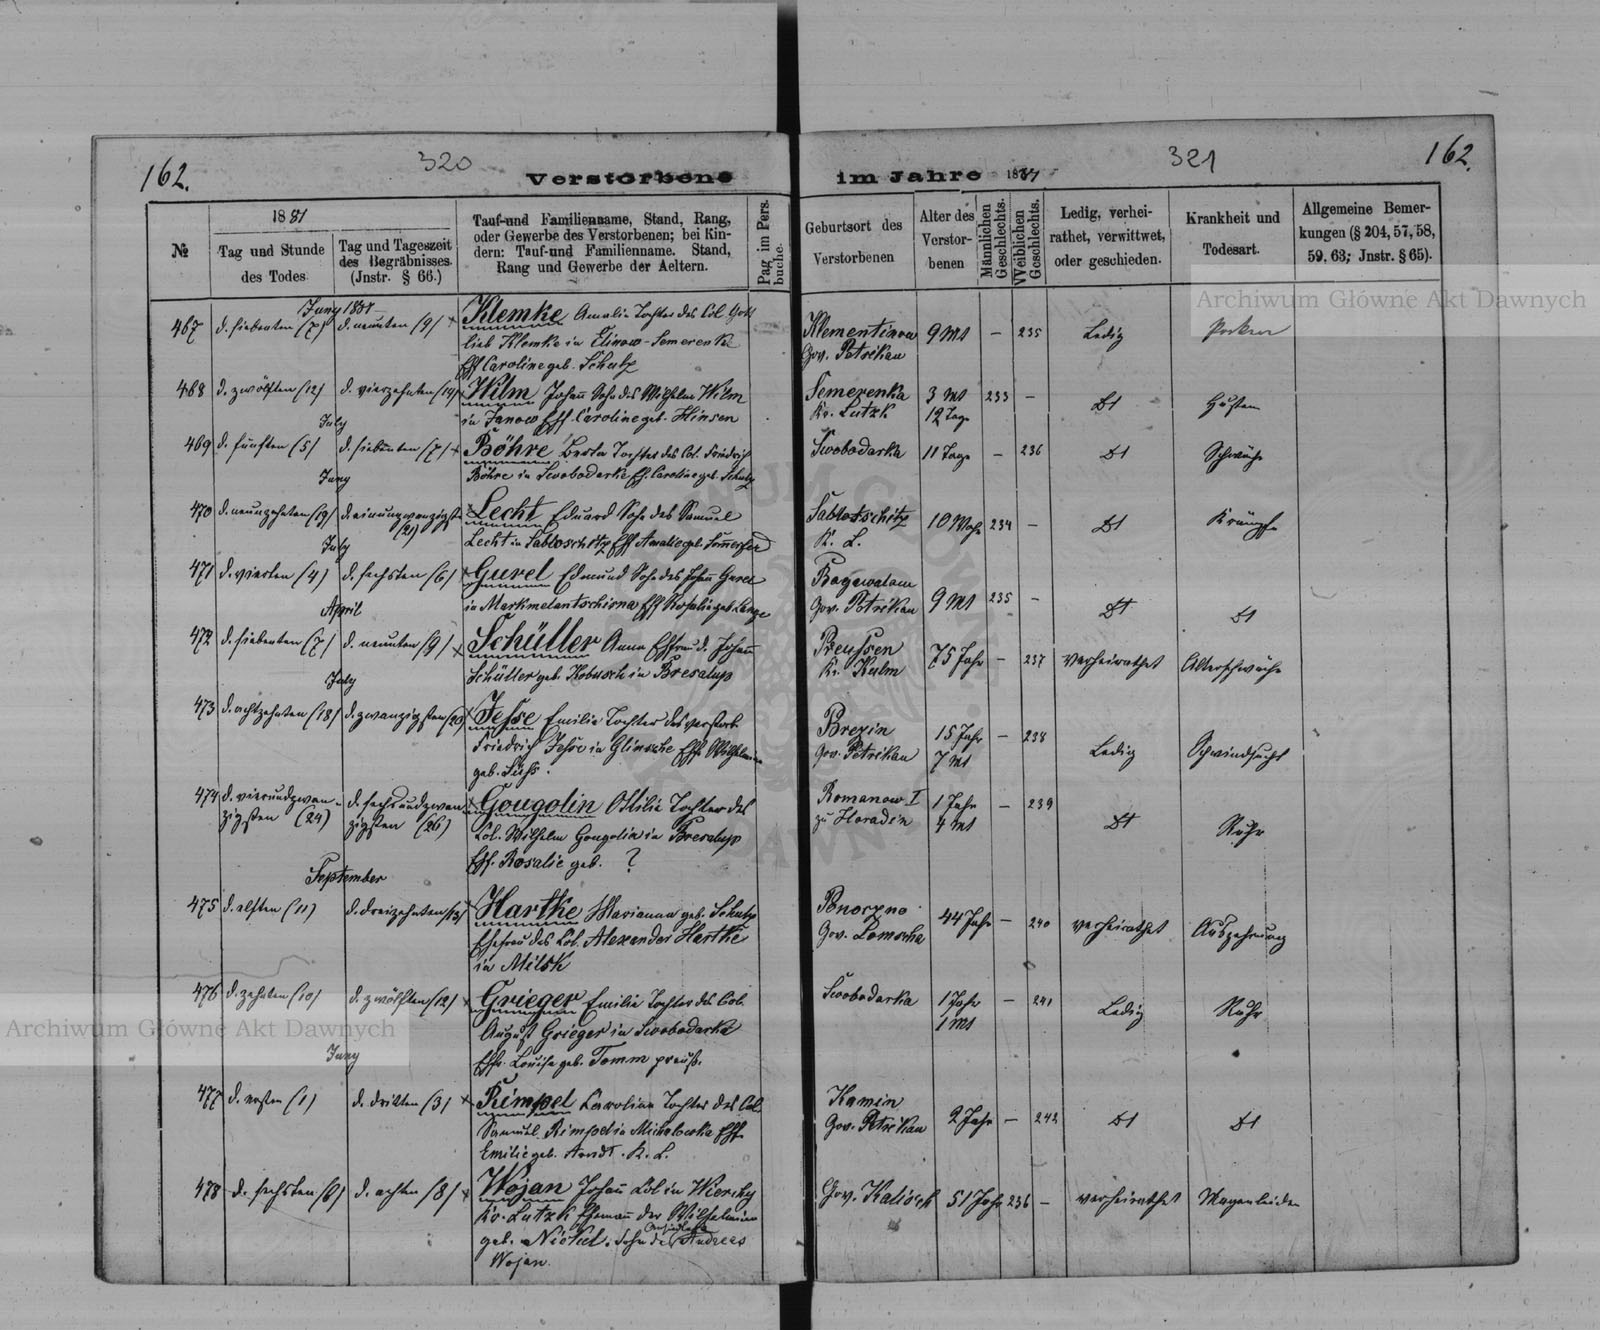 320
321
162.
162.
Verstorbene im Jahre 1881
№
1881
Tag und Stunde des Todes
Tag und Tageszeit des Begräbnisses. (Jnstr. § 66.)
Tauf-und Familienname, Stand, Rang, oder Gewerbe des Verstorbenen; bei Kindern: Tauf-und Familienname. Stand, Rang und Gewerbe der Aeltern.
Pag im Pers. buche.
Geburtsort des Verstorbenen
Alter des Verstorbenen
Männlichen Geschlechts.
Weiblichen Geschlechts.
Ledig, verheirathet, verwittwet, oder geschieden.
Krankheit und Todesart.
Allgemeine Bemerkungen (§ 204, 57, 58, 59, 63; Jnstr. § 65).
Juny 1881
467 d. siebenten (7) d. neunten (9) Klemke Amalie Tochter des Col. Gott
lieb Klemke in Elinow-Semerenka
Eff Caroline geb. Schulz
Klementinow
Gov. Petrikau
9 Mt — 235 Ledig Pocken
468 d. zwölften (12) d. vierzehnten (14) Wilm Johann Sohn des Wilhelm Wilm
in Janow Eff. Caroline geb. Hinsen
Semerenka
Kr. Lutzk
3 Mt
12 Tage
233 — Dt Husten
July
469 d. fünften (5) d. siebenten (7) Böhre Berta Tochter des Col. Friedrich
Böhre in Swobodarka Eff. Caroline geb. Schulz
Swobodarka 11 Tage — 236 Dt Schwäche
Juny
470 d. neunzehnten (19) d. einundzwanzigsten (21) Lecht Eduard Sohn des Samuel
Lecht in Sablotschitz Eff Amalie geb. Sommerfeld
Sablotschitz
K. L.
10 Woch 234 — Dt Krämpfe
July
471 d. vierten (4) d. sechsten (6) Gurel Edmund Sohn des Johann Gurel
in Markmelantschisna Eff Rosalie geb. Lange
Boguwalam
Gov. Petrikau
9 Mt 235 — Dt Dt
April
472 d. siebenten (7) d. neunten (9) Schüller Anna Ehfrau d. Johann
Schüller geb. Kobusch in Bresalup
Preussen
Kr. Kulm
75 Jahr — 237 verheirathet Altersschwäche
July
473 d. achtzehnten (18) d. zwanzigsten (20) Jesse Emilie Tochter des verstorb.
Friedrich Jesse in Glinsche Eff Wilhelmine
geb. Süss.
Brezin
Gov. Petrikau
15 Jahr
7 Mt
— 238 Ledig Schwindsucht
474 d. vierundzwan-
zigsten (24)
d. sechsundzwan
zigsten (26)
Gougolin Ottilie Tochter des
Col. Wilhelm Gougolin in Bresalup
Eff. Rosalie geb. ?
Romanow I
zu Horadin
1 Jahr
4 Mt
— 239 Dt Ruhr
September
475 d. elften (11) d. dreizehnten (13) Hartke Marianna geb. Schulz
Ehefrau des Col. Alexander Hartke
in Milsk
Ponorzno
Gov. Lomscha
44 Jahr — 240 verheirathet Auszehrung
476 d. zehnten (10) d. zwölften (12) Grieger Emilie Tochter des Col.
August Grieger in Swobodarka
Effr. Louise geb. Tomm preuß.
Swobodarka
1 Jahr
1 Mt
— 241 Ledig Ruhr
Juny
477 d. ersten (1) d. dritten (3) Rimpel Caroline Tochter des Col.
Samuel Rimpel in Michalowka Eff.
Emilie geb. Arndt. K. L.
Kamin
Gov. Petrikau
2 Jahr — 242 Dt Dt
478 d. sechsten (6) d. achten (8) Wojan Johann Col in Wierchy
Kr. Lutzk Ehemann der Wilhelmine
geb. Nickel. Sohn des Ansiedlers Andreas
Wojan.
Gov. Kalisch 51 Jahr 236 — verheirathet Magenleiden
Archiwum Główne Akt Dawnych
Archiwum Główne Akt Dawnych